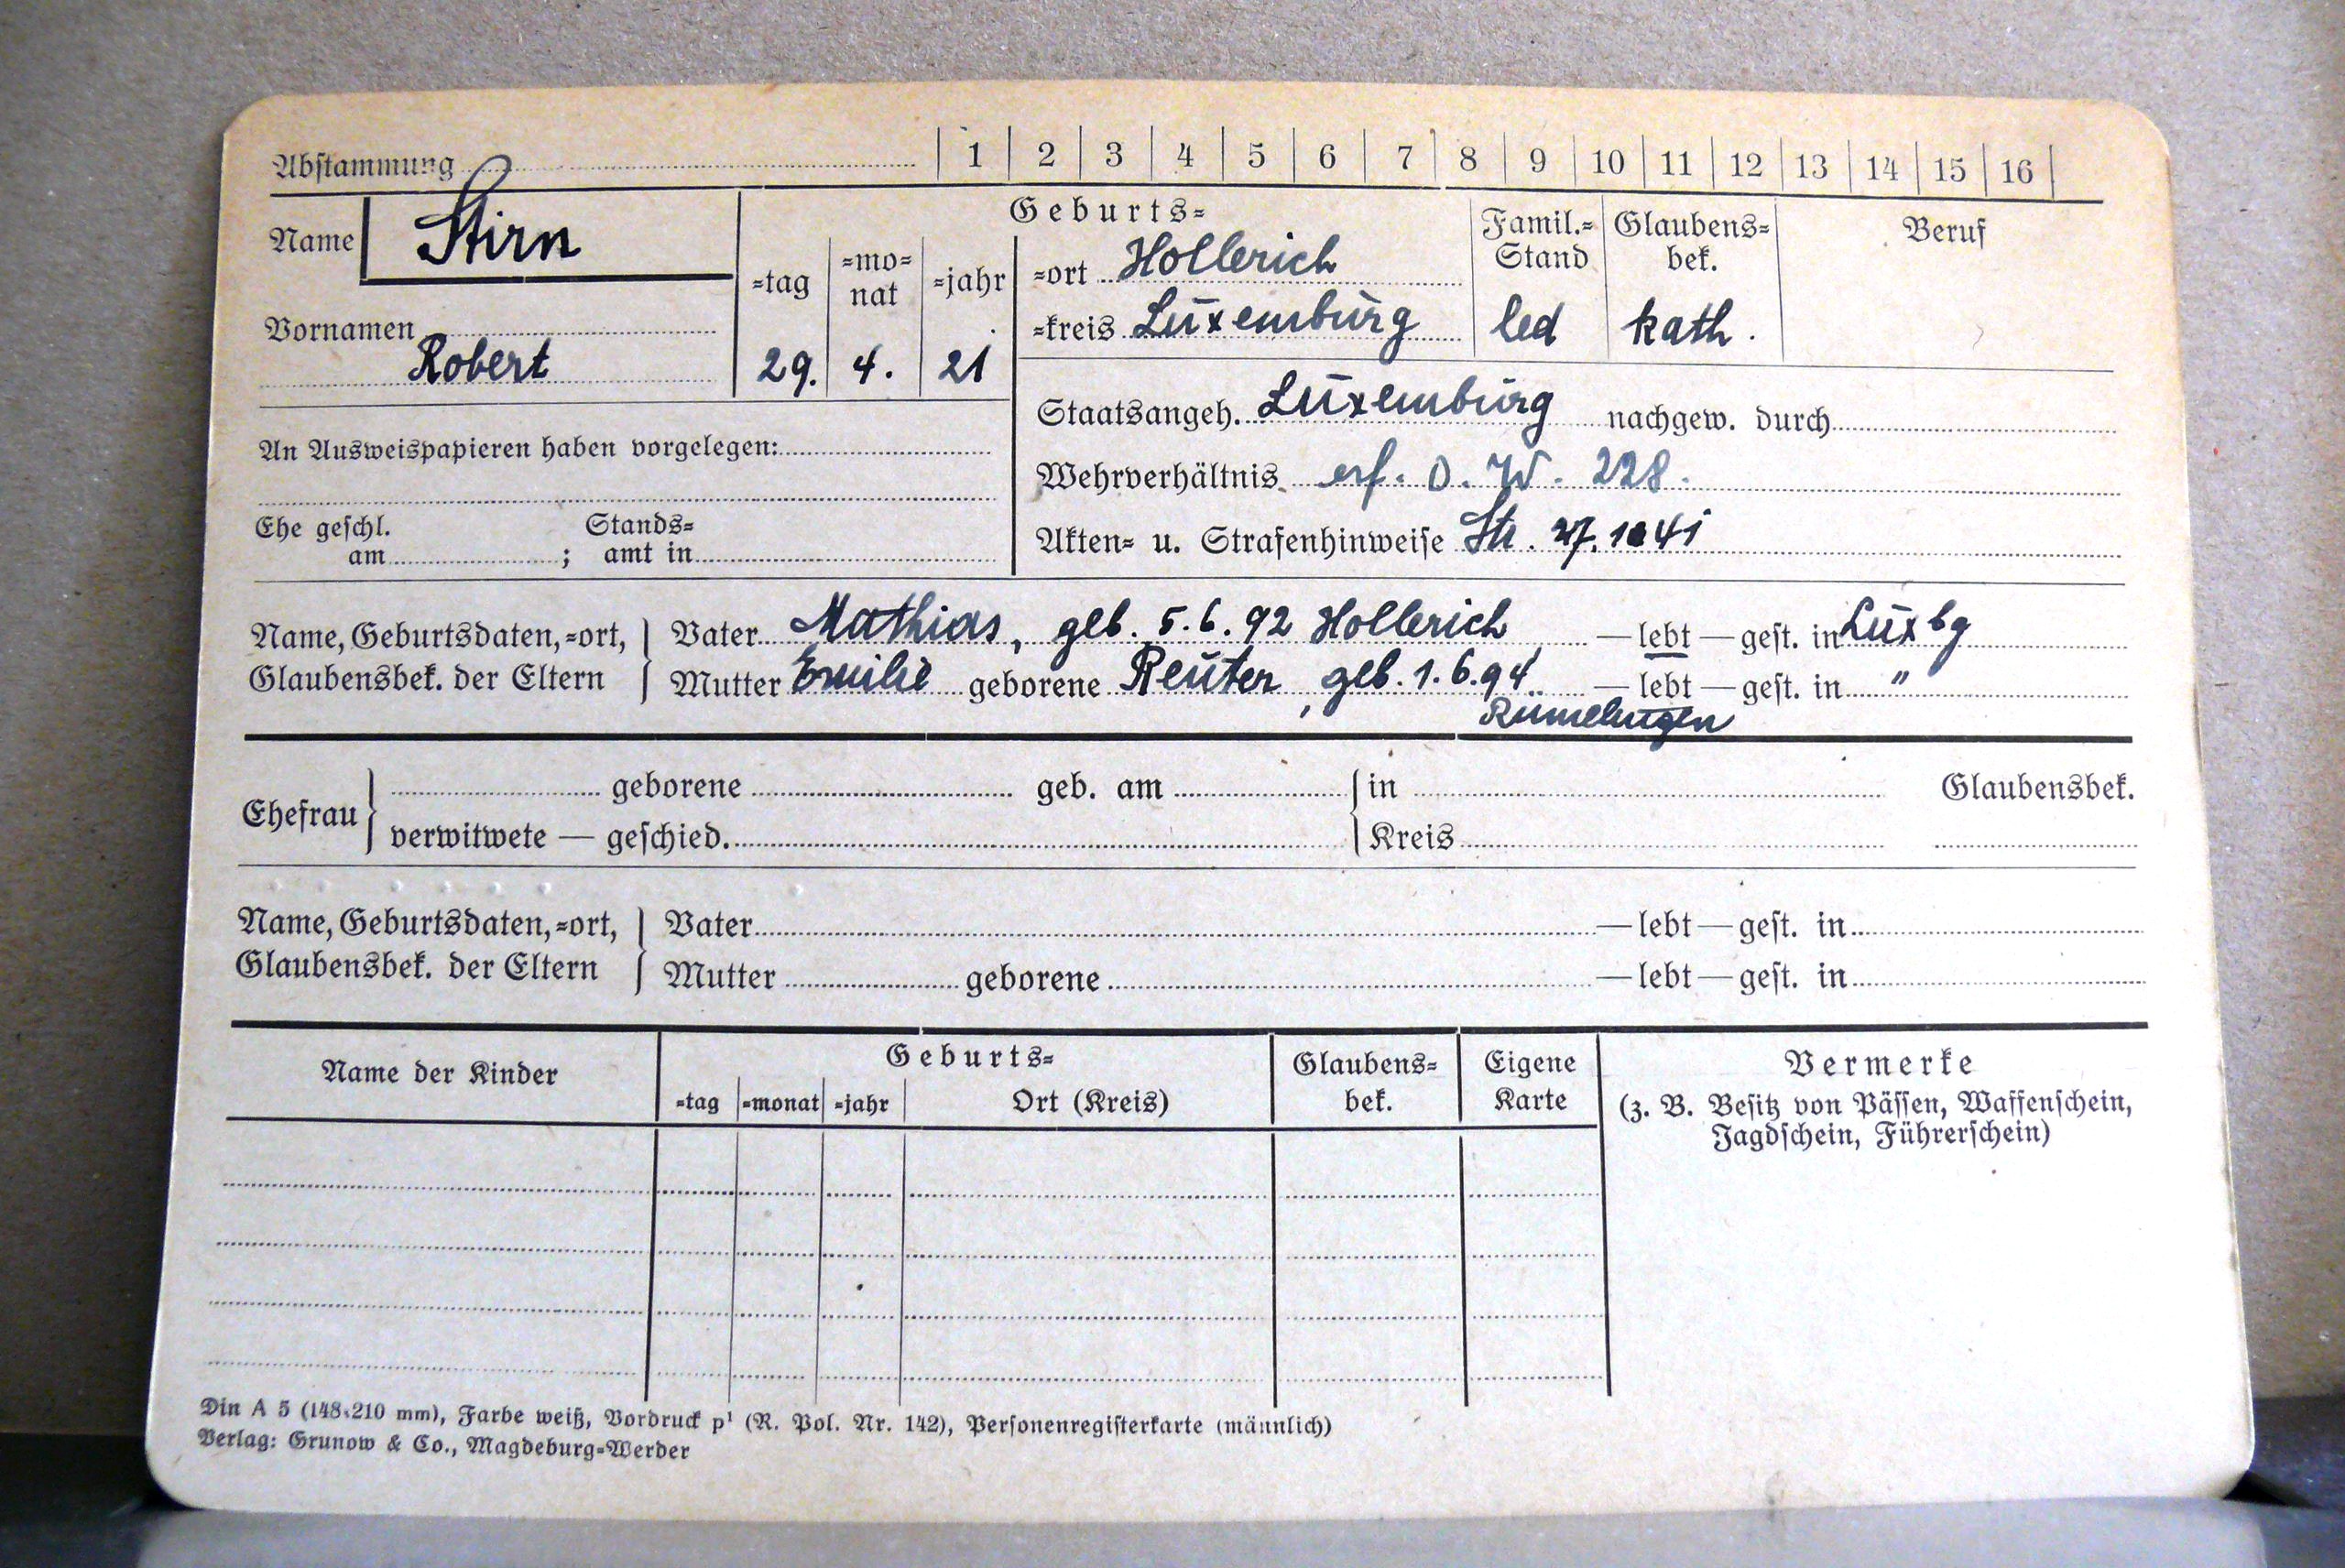 Abstammung 1 2 3 4 5 6 7 8 9 10 11 12 13 14 15 16
Name Stirn
Vornamen
Robert
Geburts=
=tag =mo=nat =jahr
29. 4. 21
=ort Hollerich
=kreis Luxemburg
Famil.=
Stand
led
Glaubens=
bek.
kath.
Beruf
An Ausweispapieren haben vorgelegen:
Ehe geschl. Stands=
am ; amt in
Staatsangeh. Luxemburg nachgew. durch
Wehrverhältnis erf. D. W. 228.
Akten= u. Strafenhinweise Str. 41
Name, Geburtsdaten, =ort, Vater Mathias, geb. 5.6.92 Hollerich — lebt — gest. in Luxbg
Glaubensbek. der Eltern Mutter Emilie geborene Reuter, geb. 1.6.94 — lebt — gest. in "
Rümelingen
Ehefrau geborene geb. am in Glaubensbek.
verwitwete — geschied. Kreis
Name, Geburtsdaten, =ort, Vater — lebt — gest. in
Glaubensbek. der Eltern Mutter geborene — lebt — gest. in
Name der Kinder
Geburts=
=tag =monat =jahr Ort (Kreis)
Glaubens=
bek.
Eigene
Karte
Vermerke
(z. B. Besitz von Pässen, Waffenschein,
Jagdschein, Führerschein)
Din A 5 (148×210 mm), Farbe weiß, Vordruck p¹ (R. Pol. Nr. 142), Personenregisterkarte (männlich)
Verlag: Grunow & Co., Magdeburg=Werder